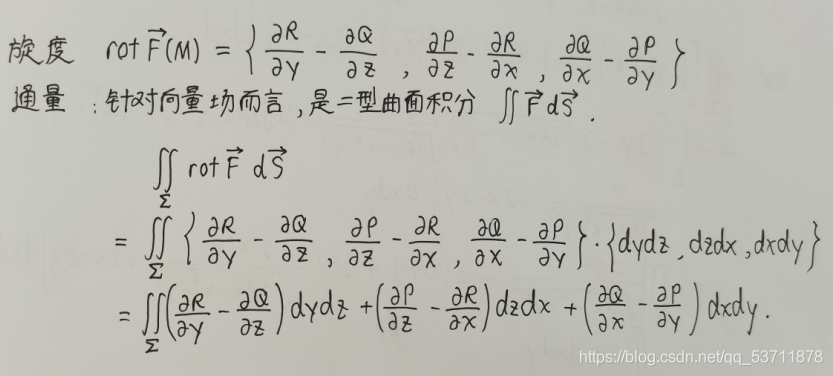 旋度 rot F⃗(M) = { ∂R/∂y - ∂Q/∂z , ∂P/∂z - ∂R/∂x , ∂Q/∂x - ∂P/∂y }
通量 : 针对向量场而言 , 是二型曲面积分 ∬ F⃗ dS⃗ .
∬_Σ rot F⃗ dS⃗
= ∬_Σ { ∂R/∂y - ∂Q/∂z , ∂P/∂z - ∂R/∂x , ∂Q/∂x - ∂P/∂y } · { dydz , dzdx , dxdy }
= ∬_Σ ( ∂R/∂y - ∂Q/∂z ) dydz + ( ∂P/∂z - ∂R/∂x ) dzdx + ( ∂Q/∂x - ∂P/∂y ) dxdy .
https://blog.csdn.net/qq_53711878